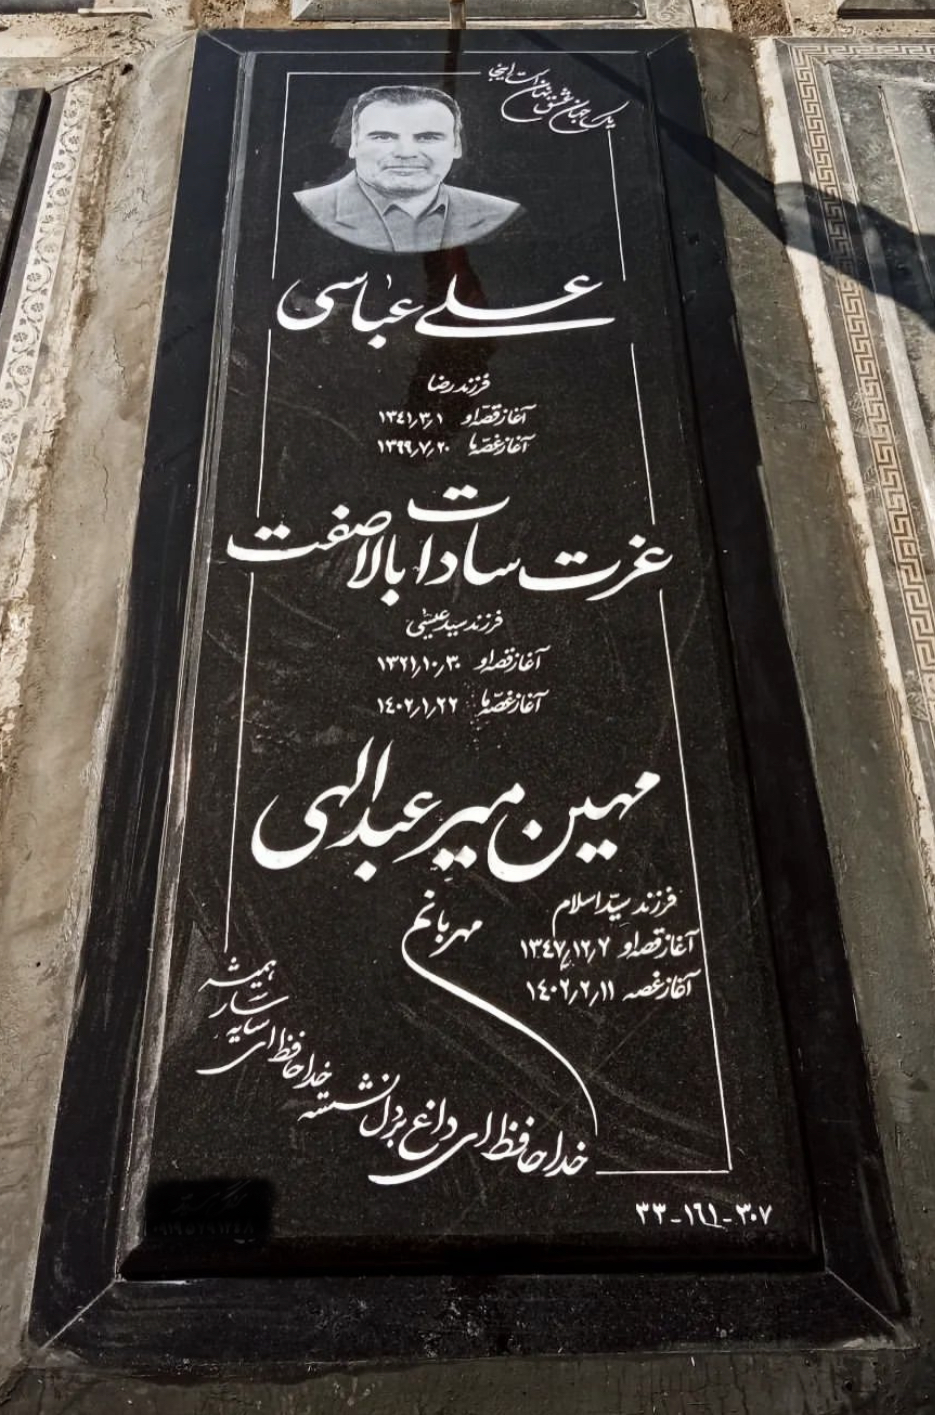 یک جهان عشق نهان است اینجا
علی عباسی
فرزند رضا
آغاز قصه او ۱۳۴۱٫۳٫۱
آغاز غصّه ما ۱۳۹۹٫۷٫۲۰
عزت سادات بالا صفت
فرزند سید عیسی
آغاز قصه او ۱۳۲۱٫۱۰٫۳۰
آغاز غصّه ما ۱۴۰۲٫۱٫۲۲
مهین میر عبدالهی
فرزند سیّد اسلام
آغاز قصه او ۱۳۴۷٫۱۲٫۲
آغاز غصه ۱۴۰۲٫۲٫۱۱
مهربانم
خداحافظ ای داغ بر دل نشسته
خداحافظ ای
سایه
سار
همیشه
۳۳-۱۶۱-۳۰۷